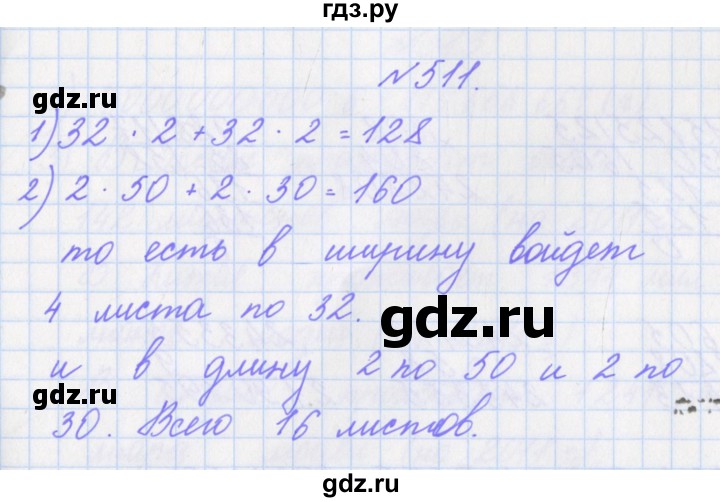 гдз.ру
№511.
gdz.ru
1) 32 · 2 + 32 · 2 = 128
2) 2 · 50 + 2 · 30 = 160
то есть в ширину войдет
4 листа по 32.
gdz.ru
и в длину 2 по 50 и 2 по
gdz.ru
30. Всего 16 листов.
гдз.ру